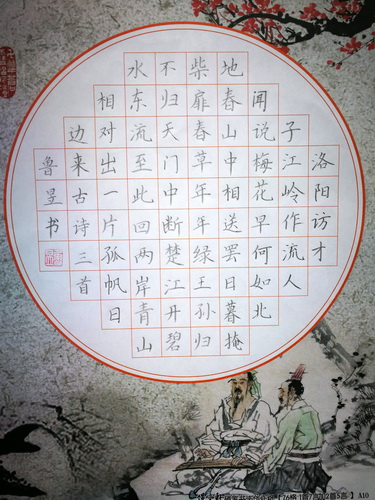 洛阳访才
子江岭作流人
闻说梅花早何如北
地春山中相送罢日暮掩
柴扉春草年年绿王孙归
不归天门中断楚江开碧
水东流至此回两岸青山
相对出一片孤帆日
边来古诗三首
鲁书
A10